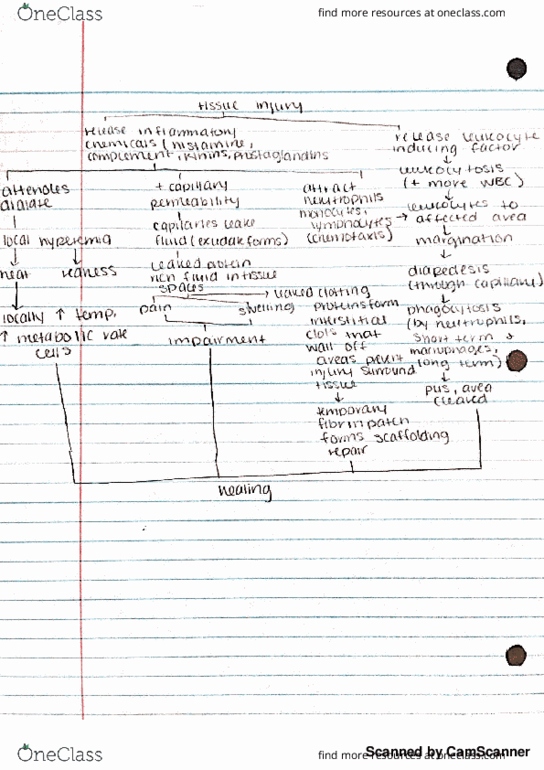 OneClass
find more resources at oneclass.com
tissue injury
release inflammatory
chemicals (histamine,
complement, kinins, prostaglandins
release leukocyte
inducing factor
arterioles
dialate
local hyperemia
heat
redness
locally ↑ temp,
↑ metabolic rate
cells
+ capillary
permeability
capillaries leake
fluid (exudate forms)
leaked protein
rich fluid in tissue
spaces
pain
swelling
impairment
leaked clotting
proteins form
interstitial
clots that
wall off
areas prevent
injury surround
tissue
temporary
fibrin patch
forms scaffolding
repair
attract
neutrophils
monocytes,
lymphocytes
(chemotaxis)
leukocytosis
(+ more WBC)
leukocytes to
→ affected area
margination
diapedesis
(through capillary)
phagocytosis
(by neutrophils,
short term
macrophages,
long term)
pus, area
cleared
healing
OneClass
find more resources at oneclass.com
Scanned by CamScanner